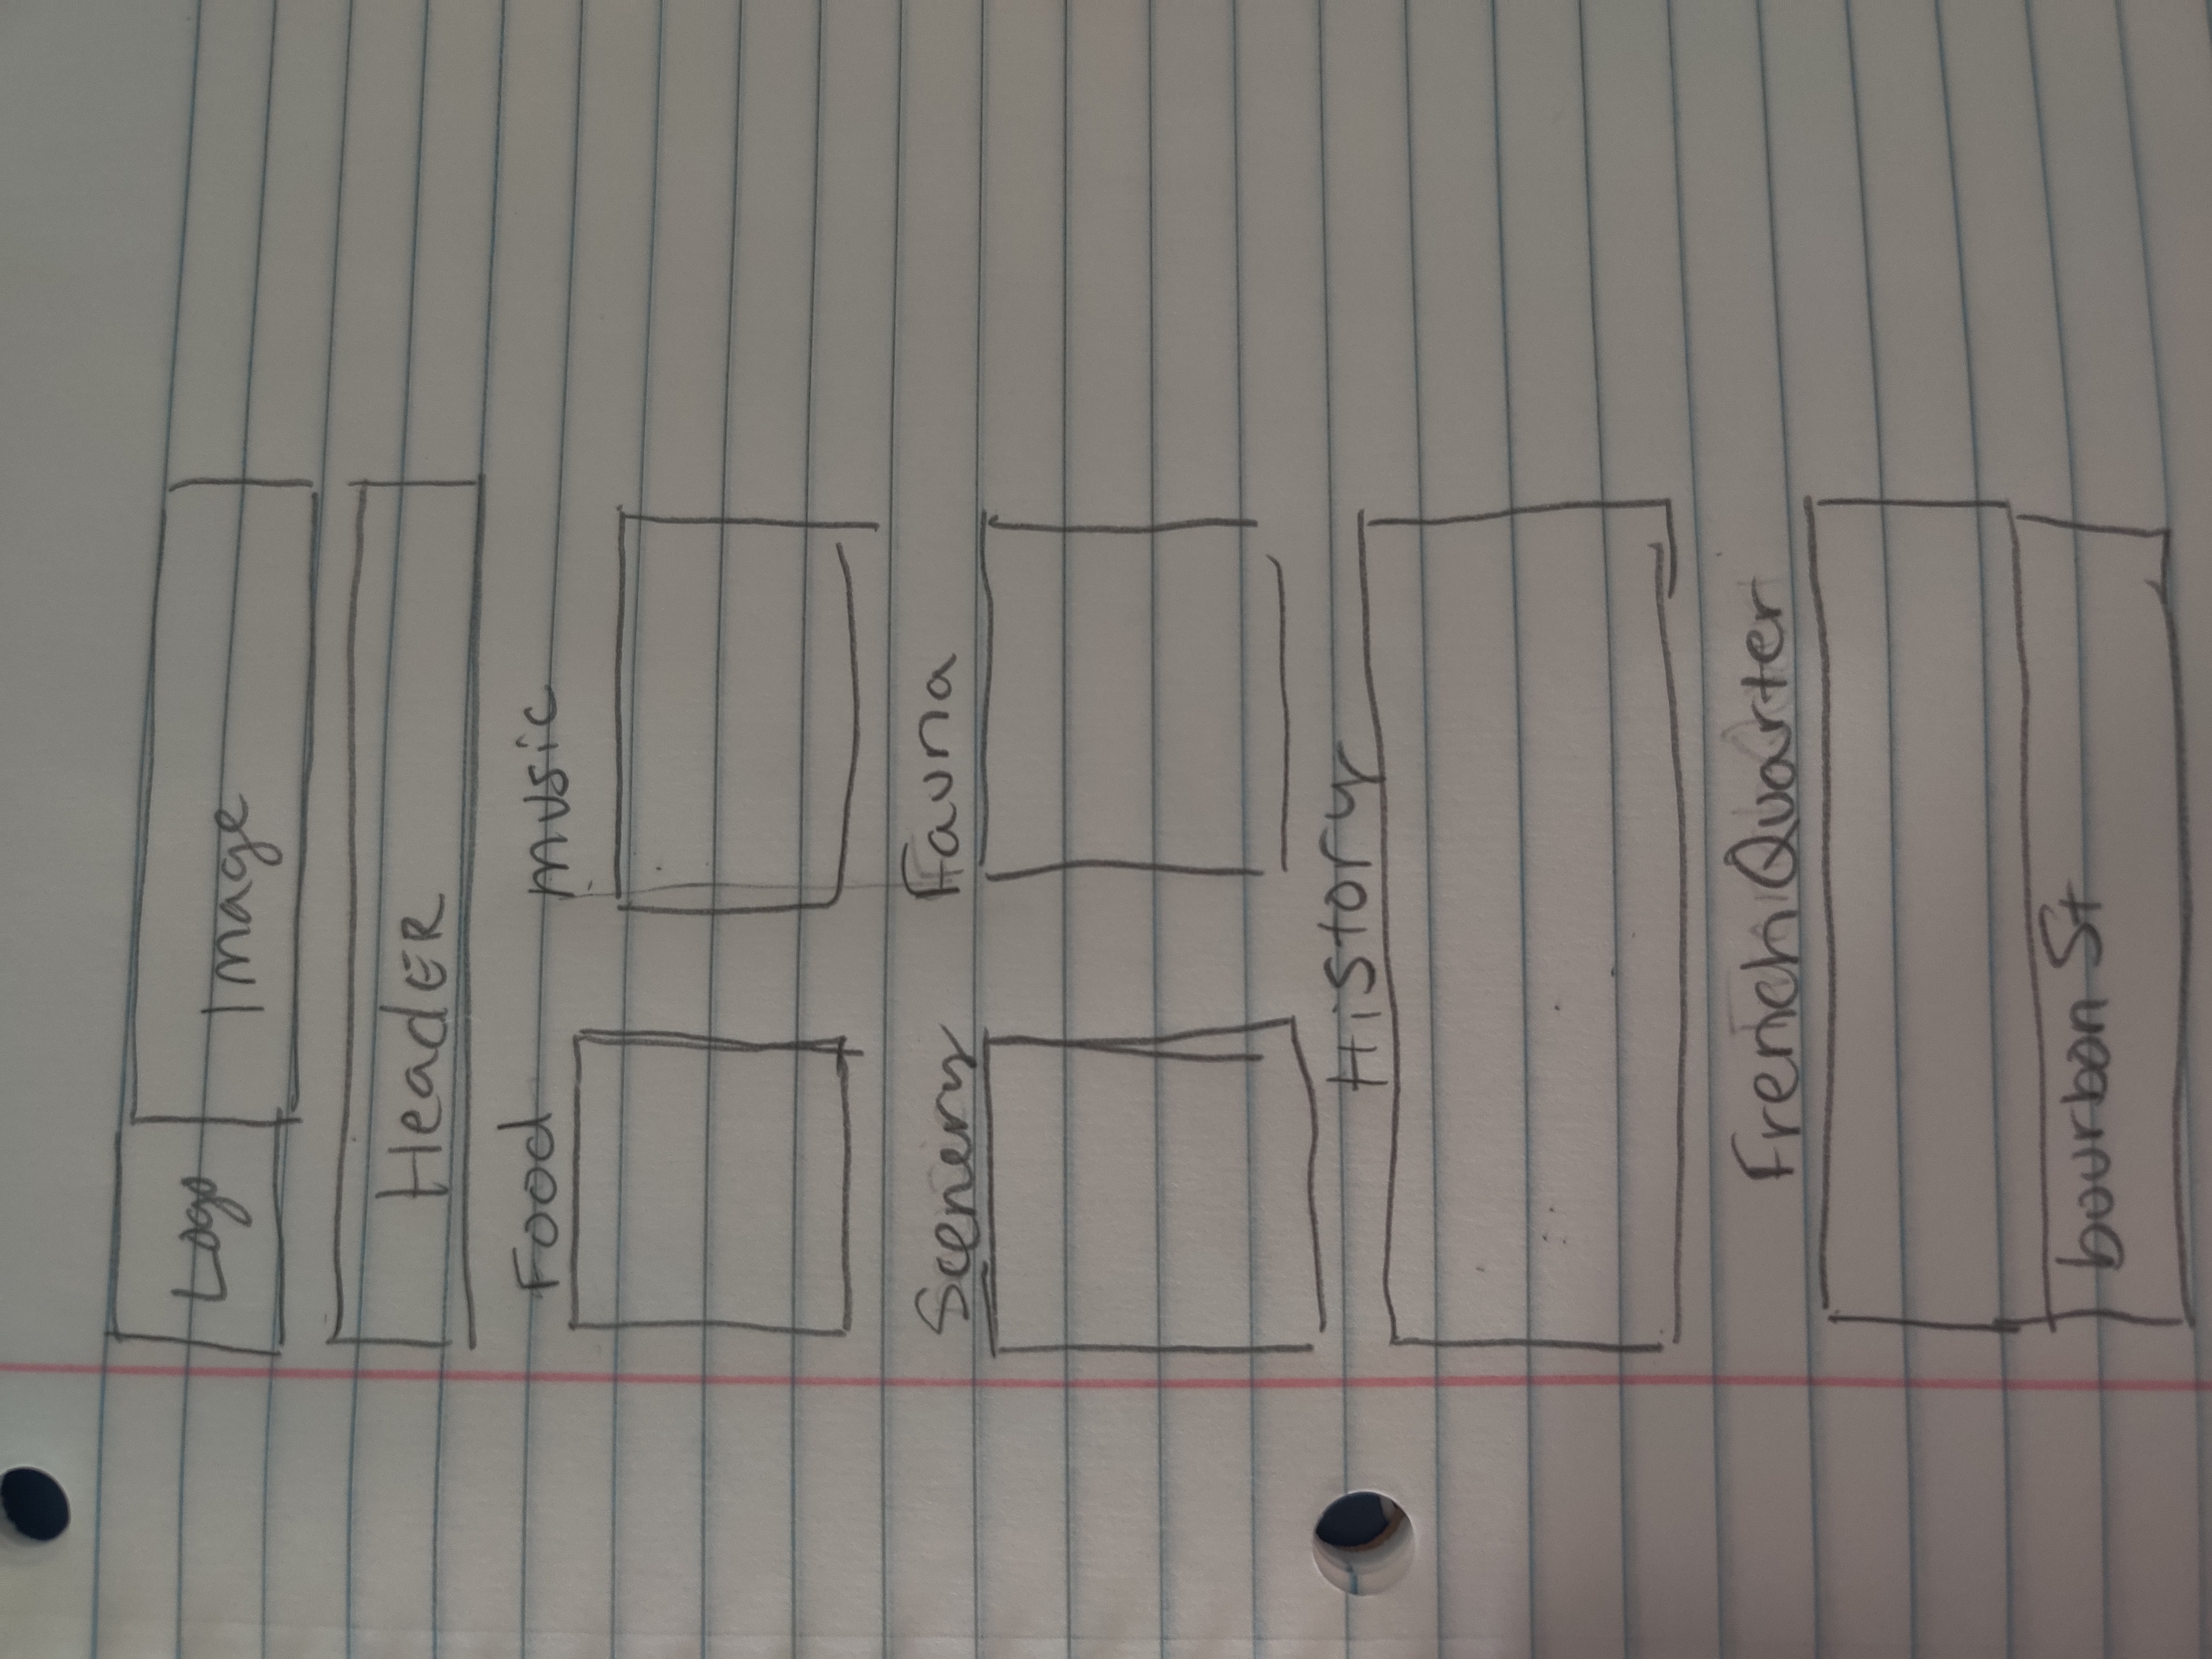 Logo Image
HeadER
Food music
Scenery Fauna
History
French Quarter
bourbon St